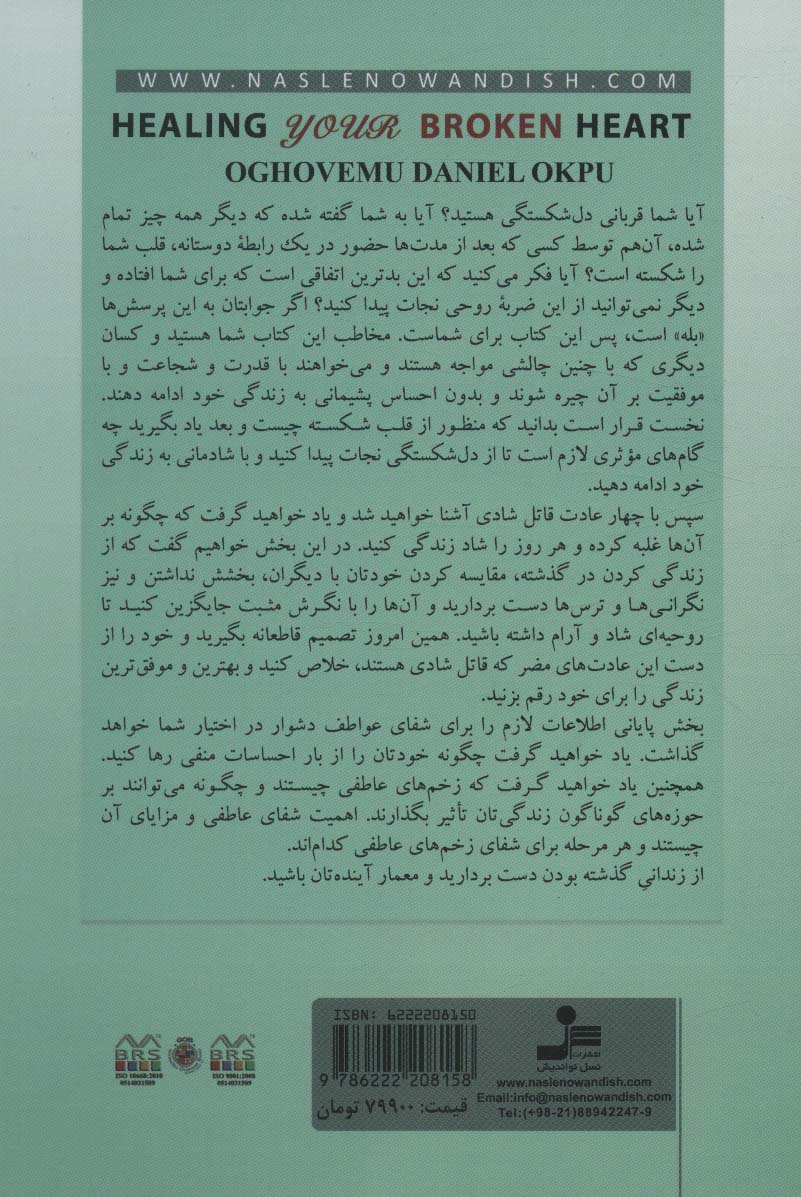 WWW.NASLENOWANDISH.COM
HEALING YOUR BROKEN HEART
OGHOVEMU DANIEL OKPU
آیا شما قربانی دل‌شکستگی هستید؟ آیا به شما گفته شده که دیگر همه چیز تمام
شده، آن‌هم توسط کسی که بعد از مدت‌ها حضور در یک رابطهٔ دوستانه، قلب شما
را شکسته است؟ آیا فکر می‌کنید که این بدترین اتفاقی است که برای شما افتاده و
دیگر نمی‌توانید از این ضربهٔ روحی نجات پیدا کنید؟ اگر جوابتان به این پرسش‌ها
«بله» است، پس این کتاب برای شماست. مخاطب این کتاب شما هستید و کسان
دیگری که با چنین چالشی مواجه هستند و می‌خواهند با قدرت و شجاعت و با
موفقیت بر آن چیره شوند و بدون احساس پشیمانی به زندگی خود ادامه دهند.
نخست قرار است بدانید که منظور از قلب شکسته چیست و بعد یاد بگیرید چه
گام‌های مؤثری لازم است تا از دل‌شکستگی نجات پیدا کنید و با شادمانی به زندگی
خود ادامه دهید.
سپس با چهار عادت قاتل شادی آشنا خواهید شد و یاد خواهید گرفت که چگونه بر
آن‌ها غلبه کرده و هر روز را شاد زندگی کنید. در این بخش خواهیم گفت که از
زندگی کردن در گذشته، مقایسه کردن خودتان با دیگران، بخشش نداشتن و نیز
نگرانی‌ها و ترس‌ها دست بردارید و آن‌ها را با نگرش مثبت جایگزین کنید تا
روحیه‌ای شاد و آرام داشته باشید. همین امروز تصمیم قاطعانه بگیرید و خود را از
دست این عادت‌های مضر که قاتل شادی هستند، خلاص کنید و بهترین و موفق‌ترین
زندگی را برای خود رقم بزنید.
بخش پایانی اطلاعات لازم را برای شفای عواطف دشوار در اختیار شما خواهد
گذاشت. یاد خواهید گرفت چگونه خودتان را از بار احساسات منفی رها کنید.
همچنین یاد خواهید گرفت که زخم‌های عاطفی چیستند و چگونه می‌توانند بر
حوزه‌های گوناگون زندگی‌تان تأثیر بگذارند. اهمیت شفای عاطفی و مزایای آن
چیستند و هر مرحله برای شفای زخم‌های عاطفی کدام‌اند.
از زندانیِ گذشته بودن دست بردارید و معمار آینده‌تان باشید.
ISBN: 6222208150
9 786222 208158
قیمت: ۷۹۹۰۰ تومان
انتشارات
نسل نواندیش
www.naslenowandish.com
Email:info@naslenowandish.com
Tel:(+98-21)88942247-9
BRS
ISO 10668:2010
0514031509
BRS
ISO 9001:2008
0514031509